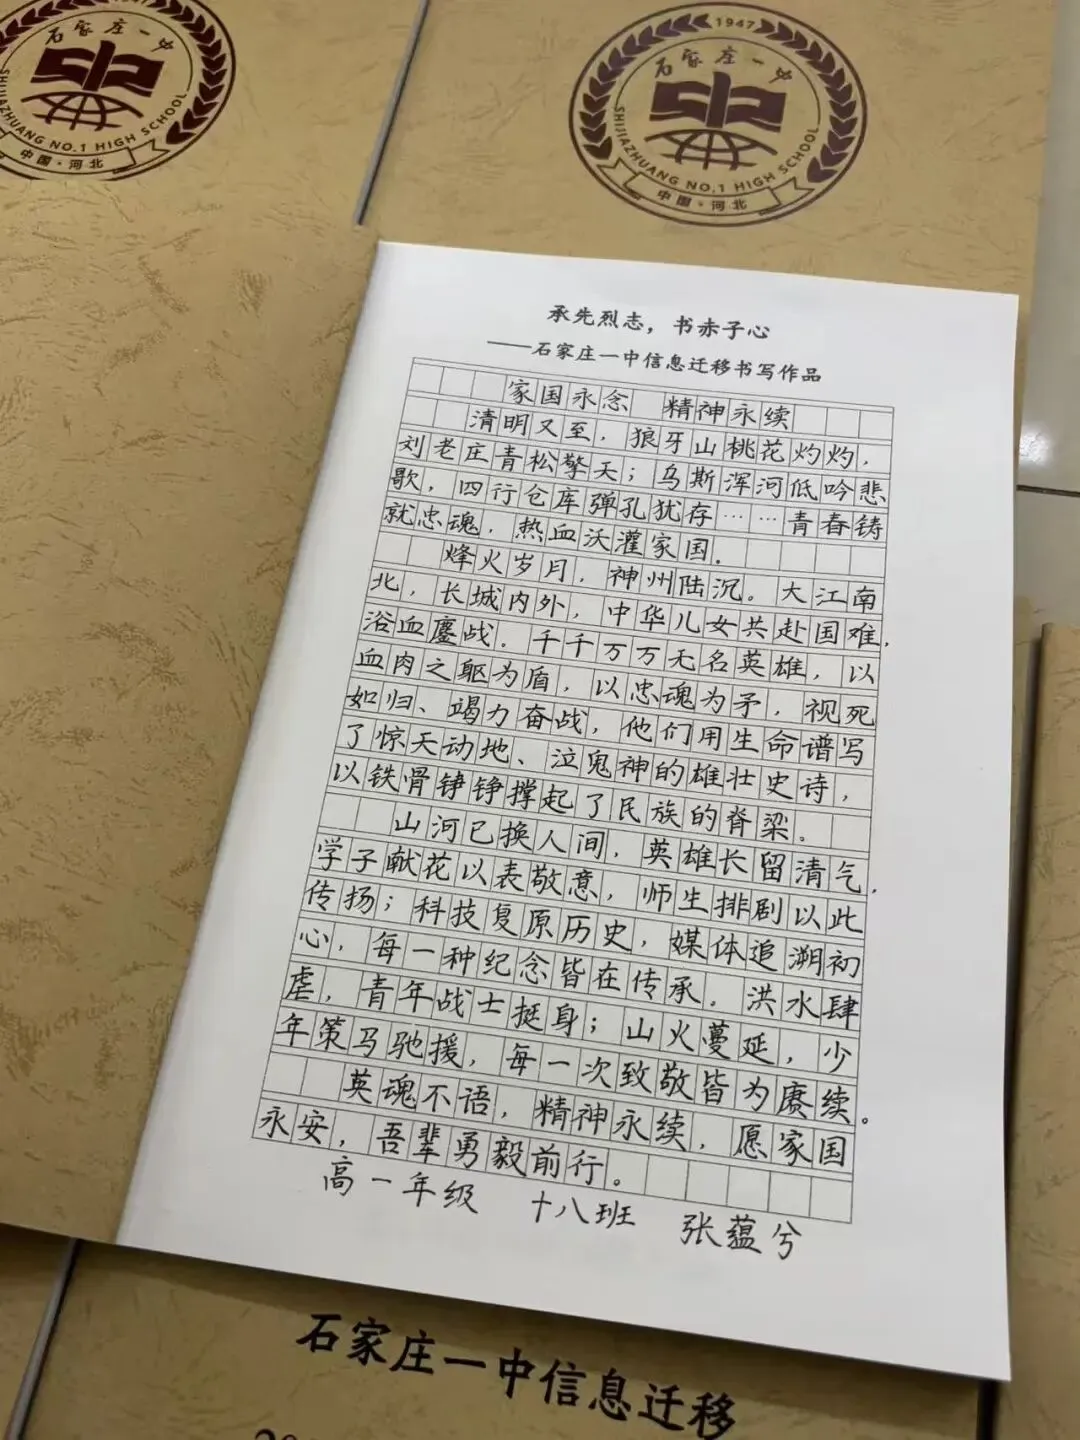 石家庄一中
SHIJIAZHUANG NO.1 HIGH SCHOOL
中国·河北
1947
石家庄一中
SHIJIAZHUANG NO.1 HIGH SCHOOL
中国·河北
承先烈志，书赤子心
——石家庄一中信息迁移书写作品
家国永念 精神永续
清明又至，狼牙山桃花灼灼，
刘老庄青松擎天；乌斯浑河低吟悲
歌，四行仓库弹孔犹存……青春铸
就忠魂，热血沃灌家国。
烽火岁月，神州陆沉。大江南
北，长城内外，中华儿女共赴国难，
浴血鏖战。千千万万无名英雄，以
血肉之躯为盾，以忠魂为矛，视死
如归、竭力奋战，他们用生命谱写
了惊天动地、泣鬼神的雄壮史诗，
以铁骨铮铮撑起了民族的脊梁。
山河已换人间，英雄长留清气，
学子献花以表敬意，师生排剧以此
传扬；科技复原历史，媒体追溯初
心，每一种纪念皆在传承。洪水肆
虐，青年战士挺身；山火蔓延，少
年策马驰援，每一次致敬皆为赓续。
英魂不语，精神永续，愿家国
永安，吾辈勇毅前行。
高一年级 十八班 张蕴兮
石家庄一中信息迁移